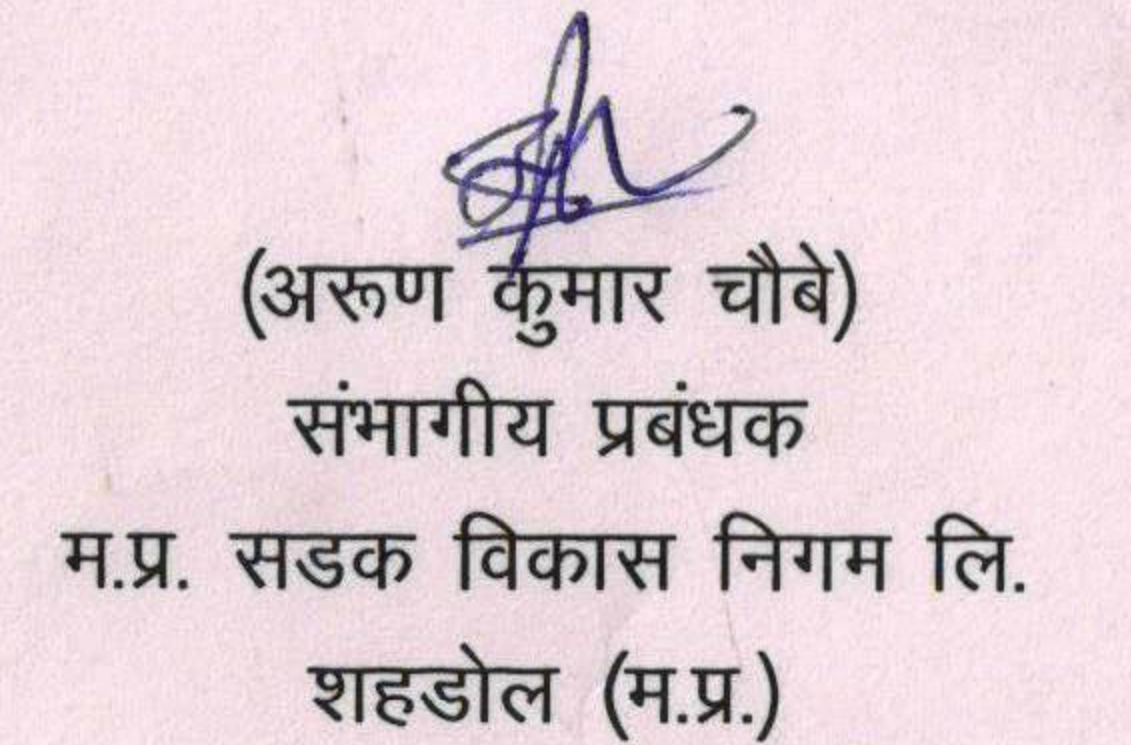 (अरूण कुमार चौबे)
संभागीय प्रबंधक
म.प्र. सडक विकास निगम लि.
शहडोल (म.प्र.)